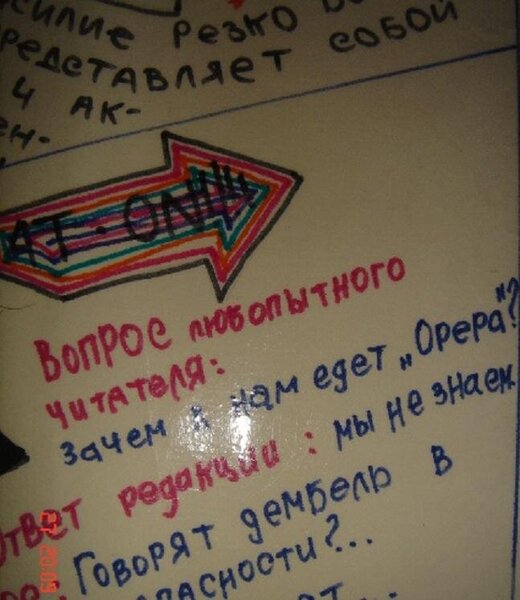 СИЛИЕ РЕЗКО
РЕДСТАВЛЯЕТ СОБОЙ
4 АК-
ЕН-
АТ-ОЛ
ВОПРОС ЛЮБОПЫТНОГО
ЧИТАТЕЛЯ:
ЗАЧЕМ К НАМ ЕДЕТ „ОРЕРА"?
ОТВЕТ РЕДАКЦИИ: МЫ НЕ ЗНАЕМ
ГОВОРЯТ ДЕМБЕЛЬ В
ОПАСНОСТИ?...